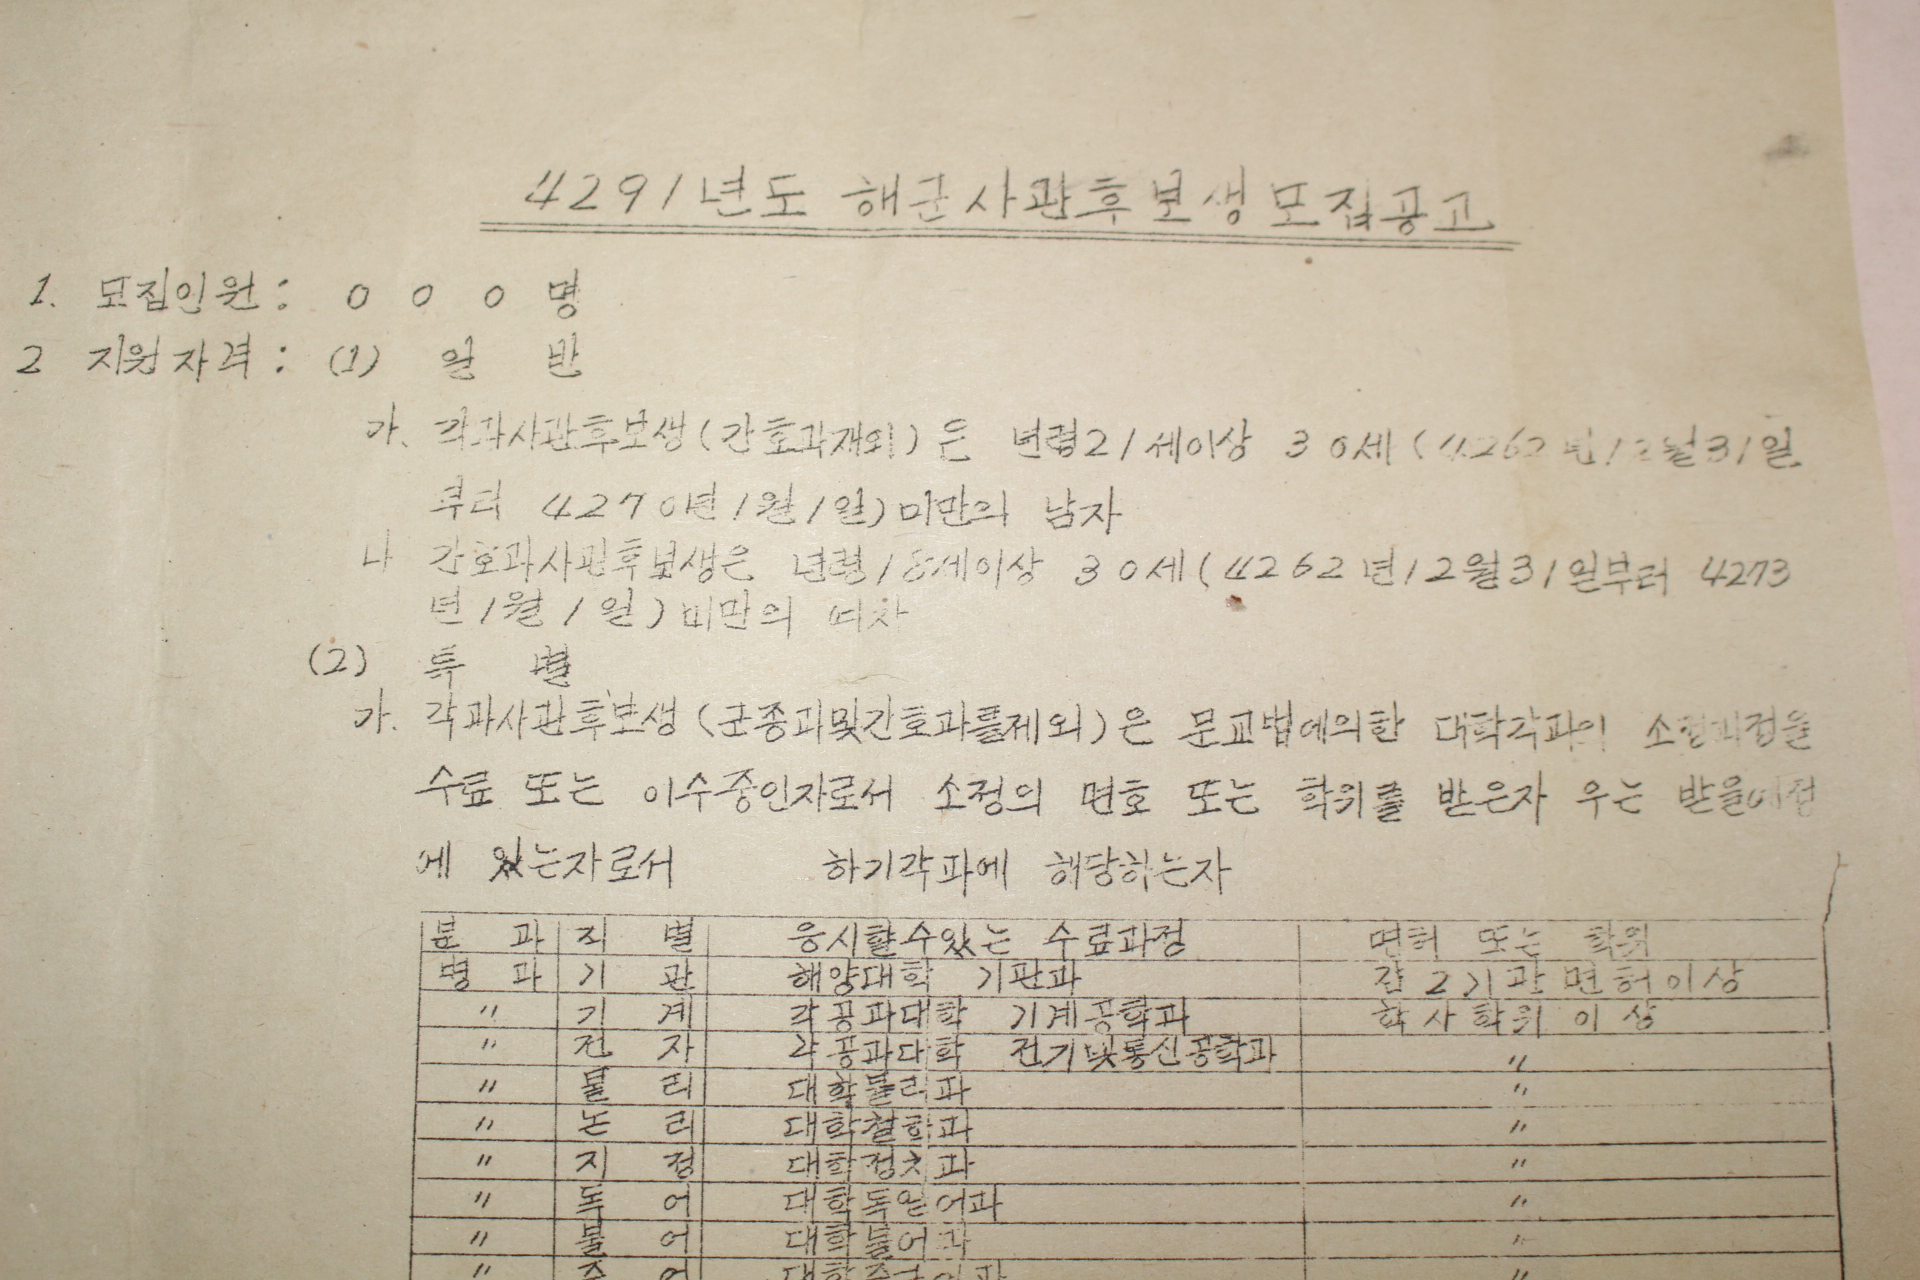 4291년도 해군사관후보생모집공고
1. 모집인원: 0 0 0 명
2 지원자격: (1) 일 반
가. 각과사관후보생(간호과재외)은 년령21세이상 30세(4262년12월31일
부터 4270년1월1일)미만의 남자
나 간호과사관후보생은 년령18세이상 30세(4262년12월31일부터 4273
년1월1일)미만의 여자
(2) 특 별
가. 각과사관후보생(군종과및간호과를제외)은 문교법에의한 대학각과의 소정과정을
수료 또는 이수중인자로서 소정의 면호 또는 학위를 받은자 우는 받을예정
에 있는자로서 하기각과에 해당하는자
분 과 직 별 응시할수있는 수료과정 면허 또는 학위
병 과 기 관 해양대학 기관과 갑2기관면허이상
〃 기 계 각공과대학 기계공학과 학사학위이상
〃 전 자 각공과대학 전기및통신공학과 〃
〃 물 리 대학물리과 〃
〃 논 리 대학철학과 〃
〃 지 정 대학정치과 〃
〃 독 어 대학독일어과 〃
〃 불 어 대학불어과 〃
〃 중 어 대학중국어과 〃